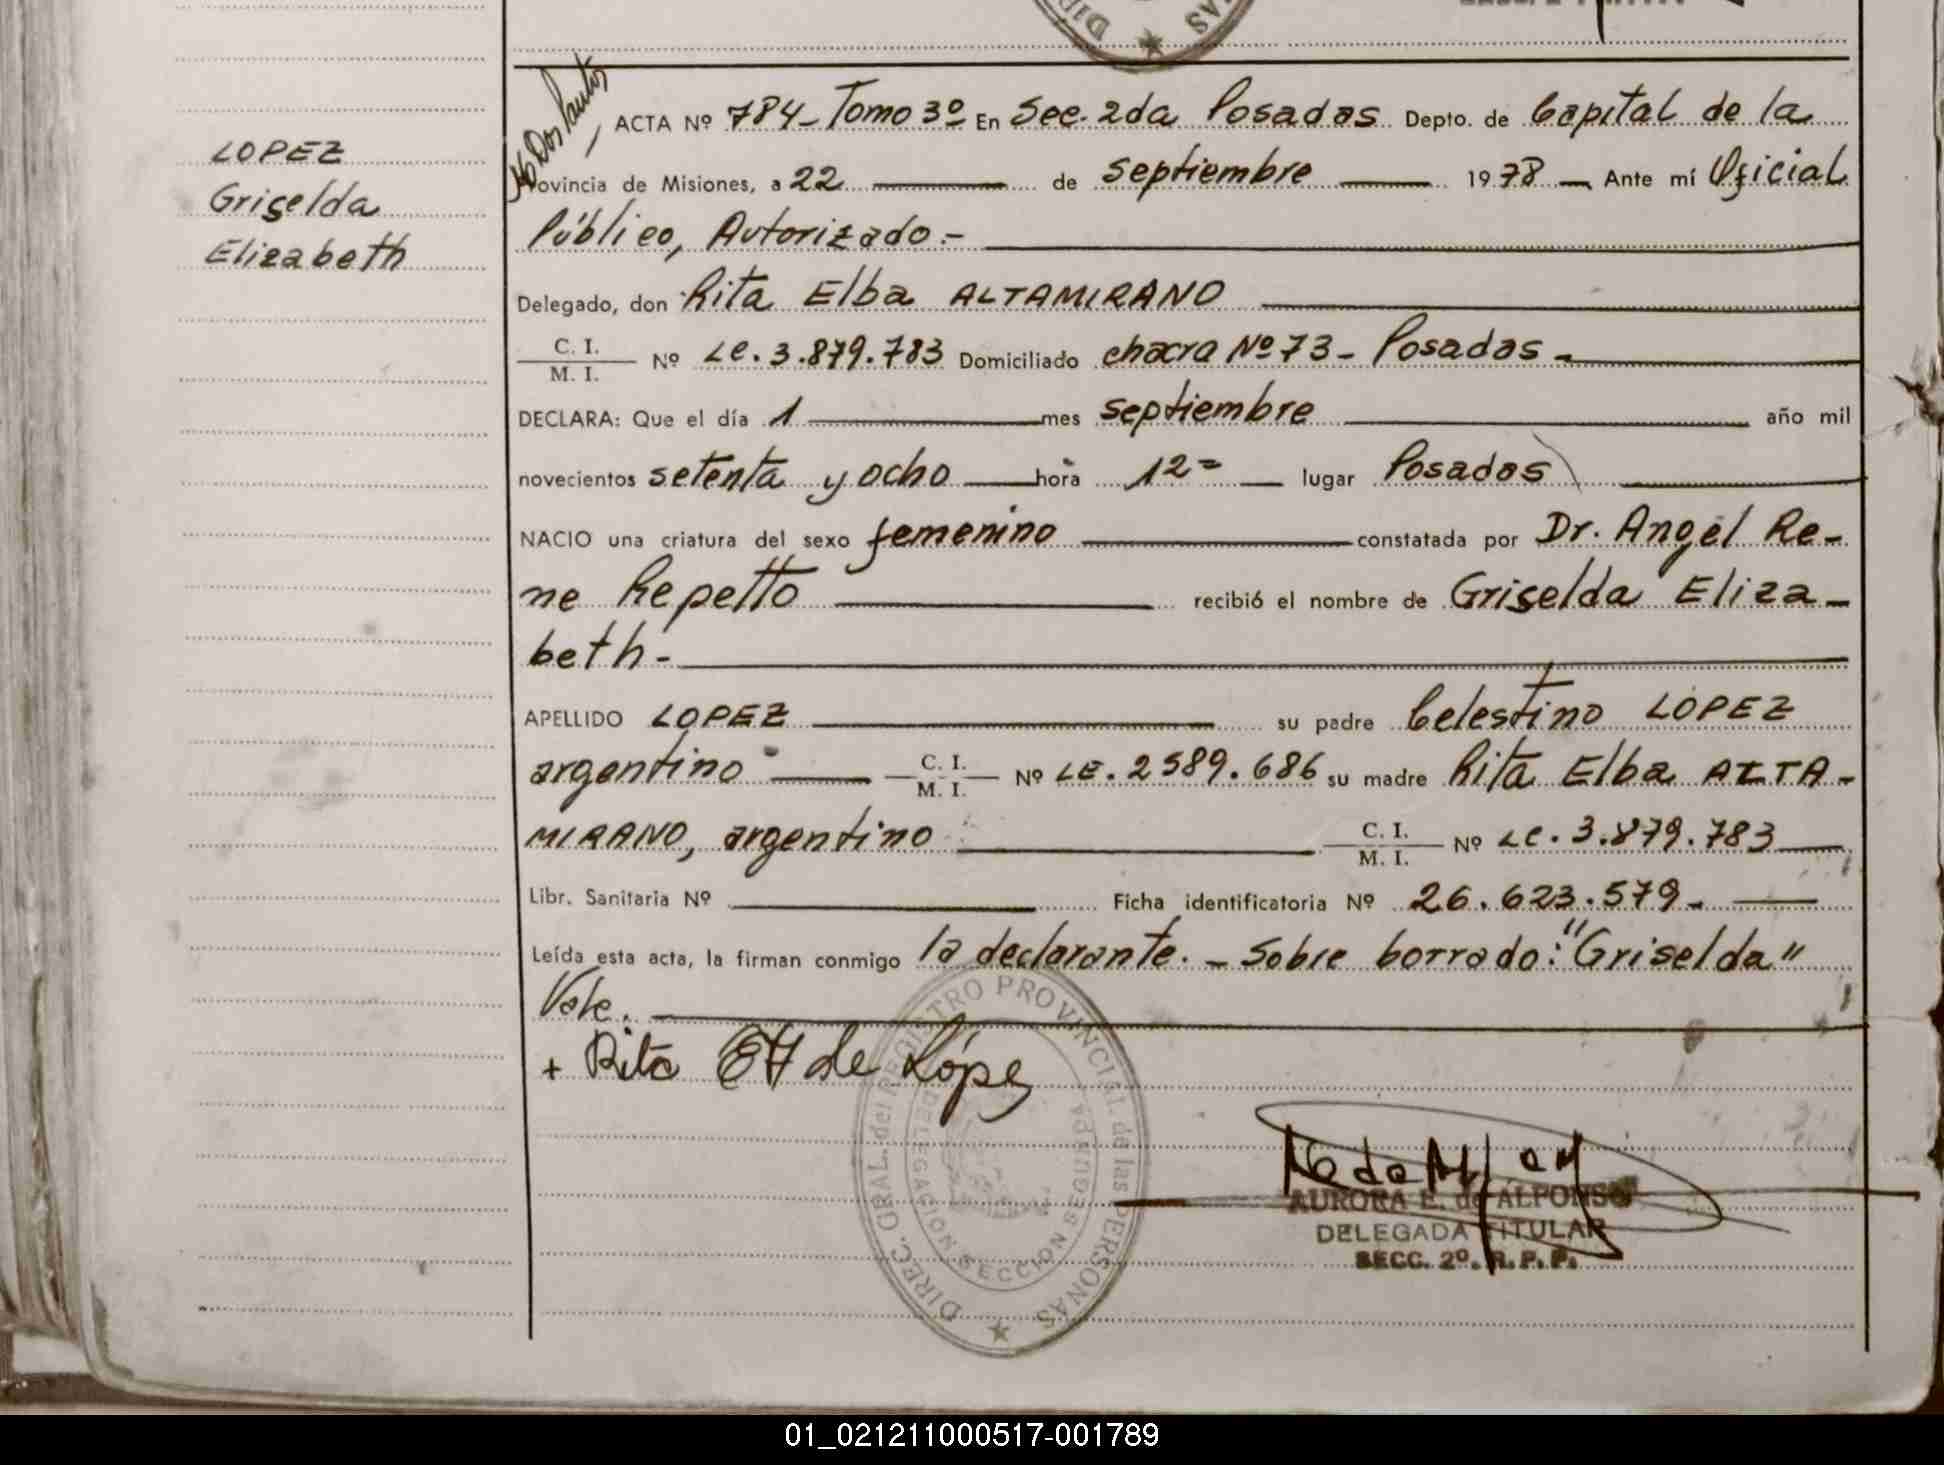 LOPEZ
Griselda
Elizabeth
ACTA Nº 784- Tomo 3º En Sec. 2da Posadas Depto. de Capital de la
Provincia de Misiones, a 22 de septiembre 1978 Ante mí Oficial
Público, Autorizado.-
Delegado, don Rita Elba ALTAMIRANO
C. I.
M. I. Nº LC. 3.879.783 Domiciliado chacra Nº 73- Posadas-
DECLARA: Que el día 1 mes septiembre año mil
novecientos setenta y ocho hora 12= lugar Posadas
NACIO una criatura del sexo femenino constatada por Dr. Angel Re-
ne Repetto recibió el nombre de Griselda Eliza-
beth-
APELLIDO LOPEZ su padre Celestino LOPEZ
argentino C. I.
M. I. Nº LE. 2589.686 su madre Rita Elba ALTA-
MIRANO, argentino C. I.
M. I. Nº LC. 3.879.783
Libr. Sanitaria Nº Ficha identificatoria Nº 26.623.579-
Leída esta acta, la firman conmigo la declarante.- Sobre borrado: "Griselda"
Vale.
+ Rita de Lópe
DIREC. GRAL. del REGISTRO PROVINCIAL de las PERSONAS
DELEGACION SECCION SEGUNDA
AURORA E. de ALFONSO
DELEGADA TITULAR
SECC. 2º. R. P. P.
01_021211000517-001789